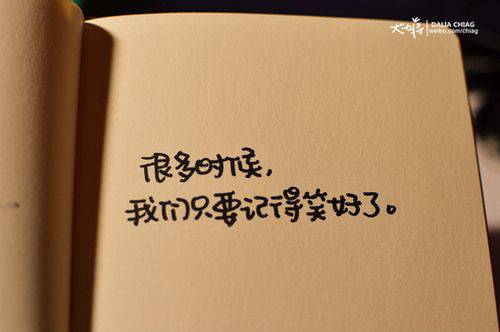 DALIA CHIAG
weibo.com/chiag
很多时候，
我们只要记得笑好了。